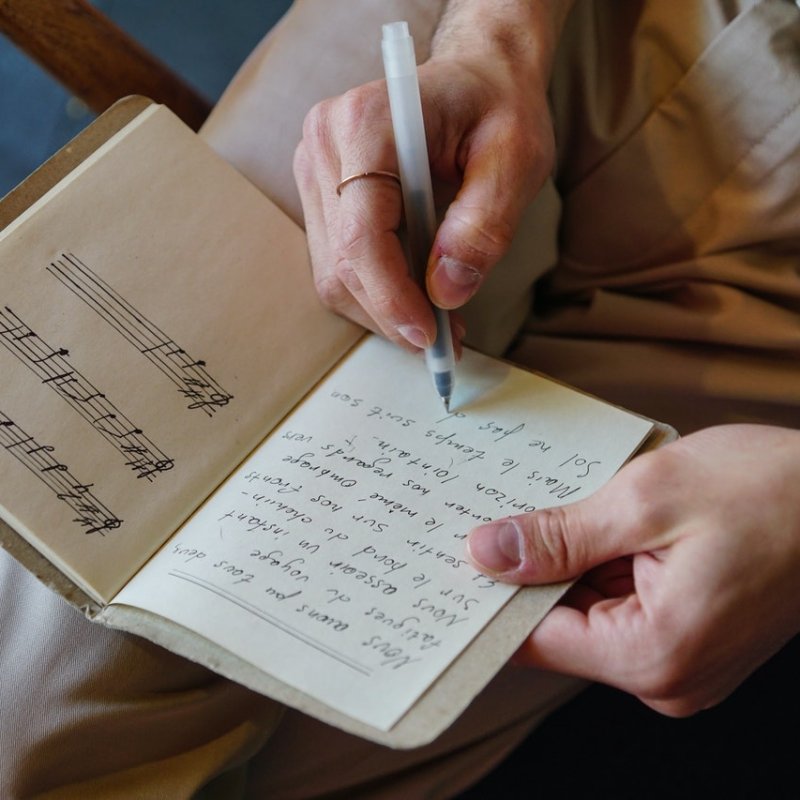 Nous avions pu tous deux
fatigués du voyage
Nous asseoir un instant
Sur le bord du chemin-
Et sentir sur nos fronts
le même ombrage
nos regards vers
horizon lointain.
Mais le temps suit son
Sol ne pas d